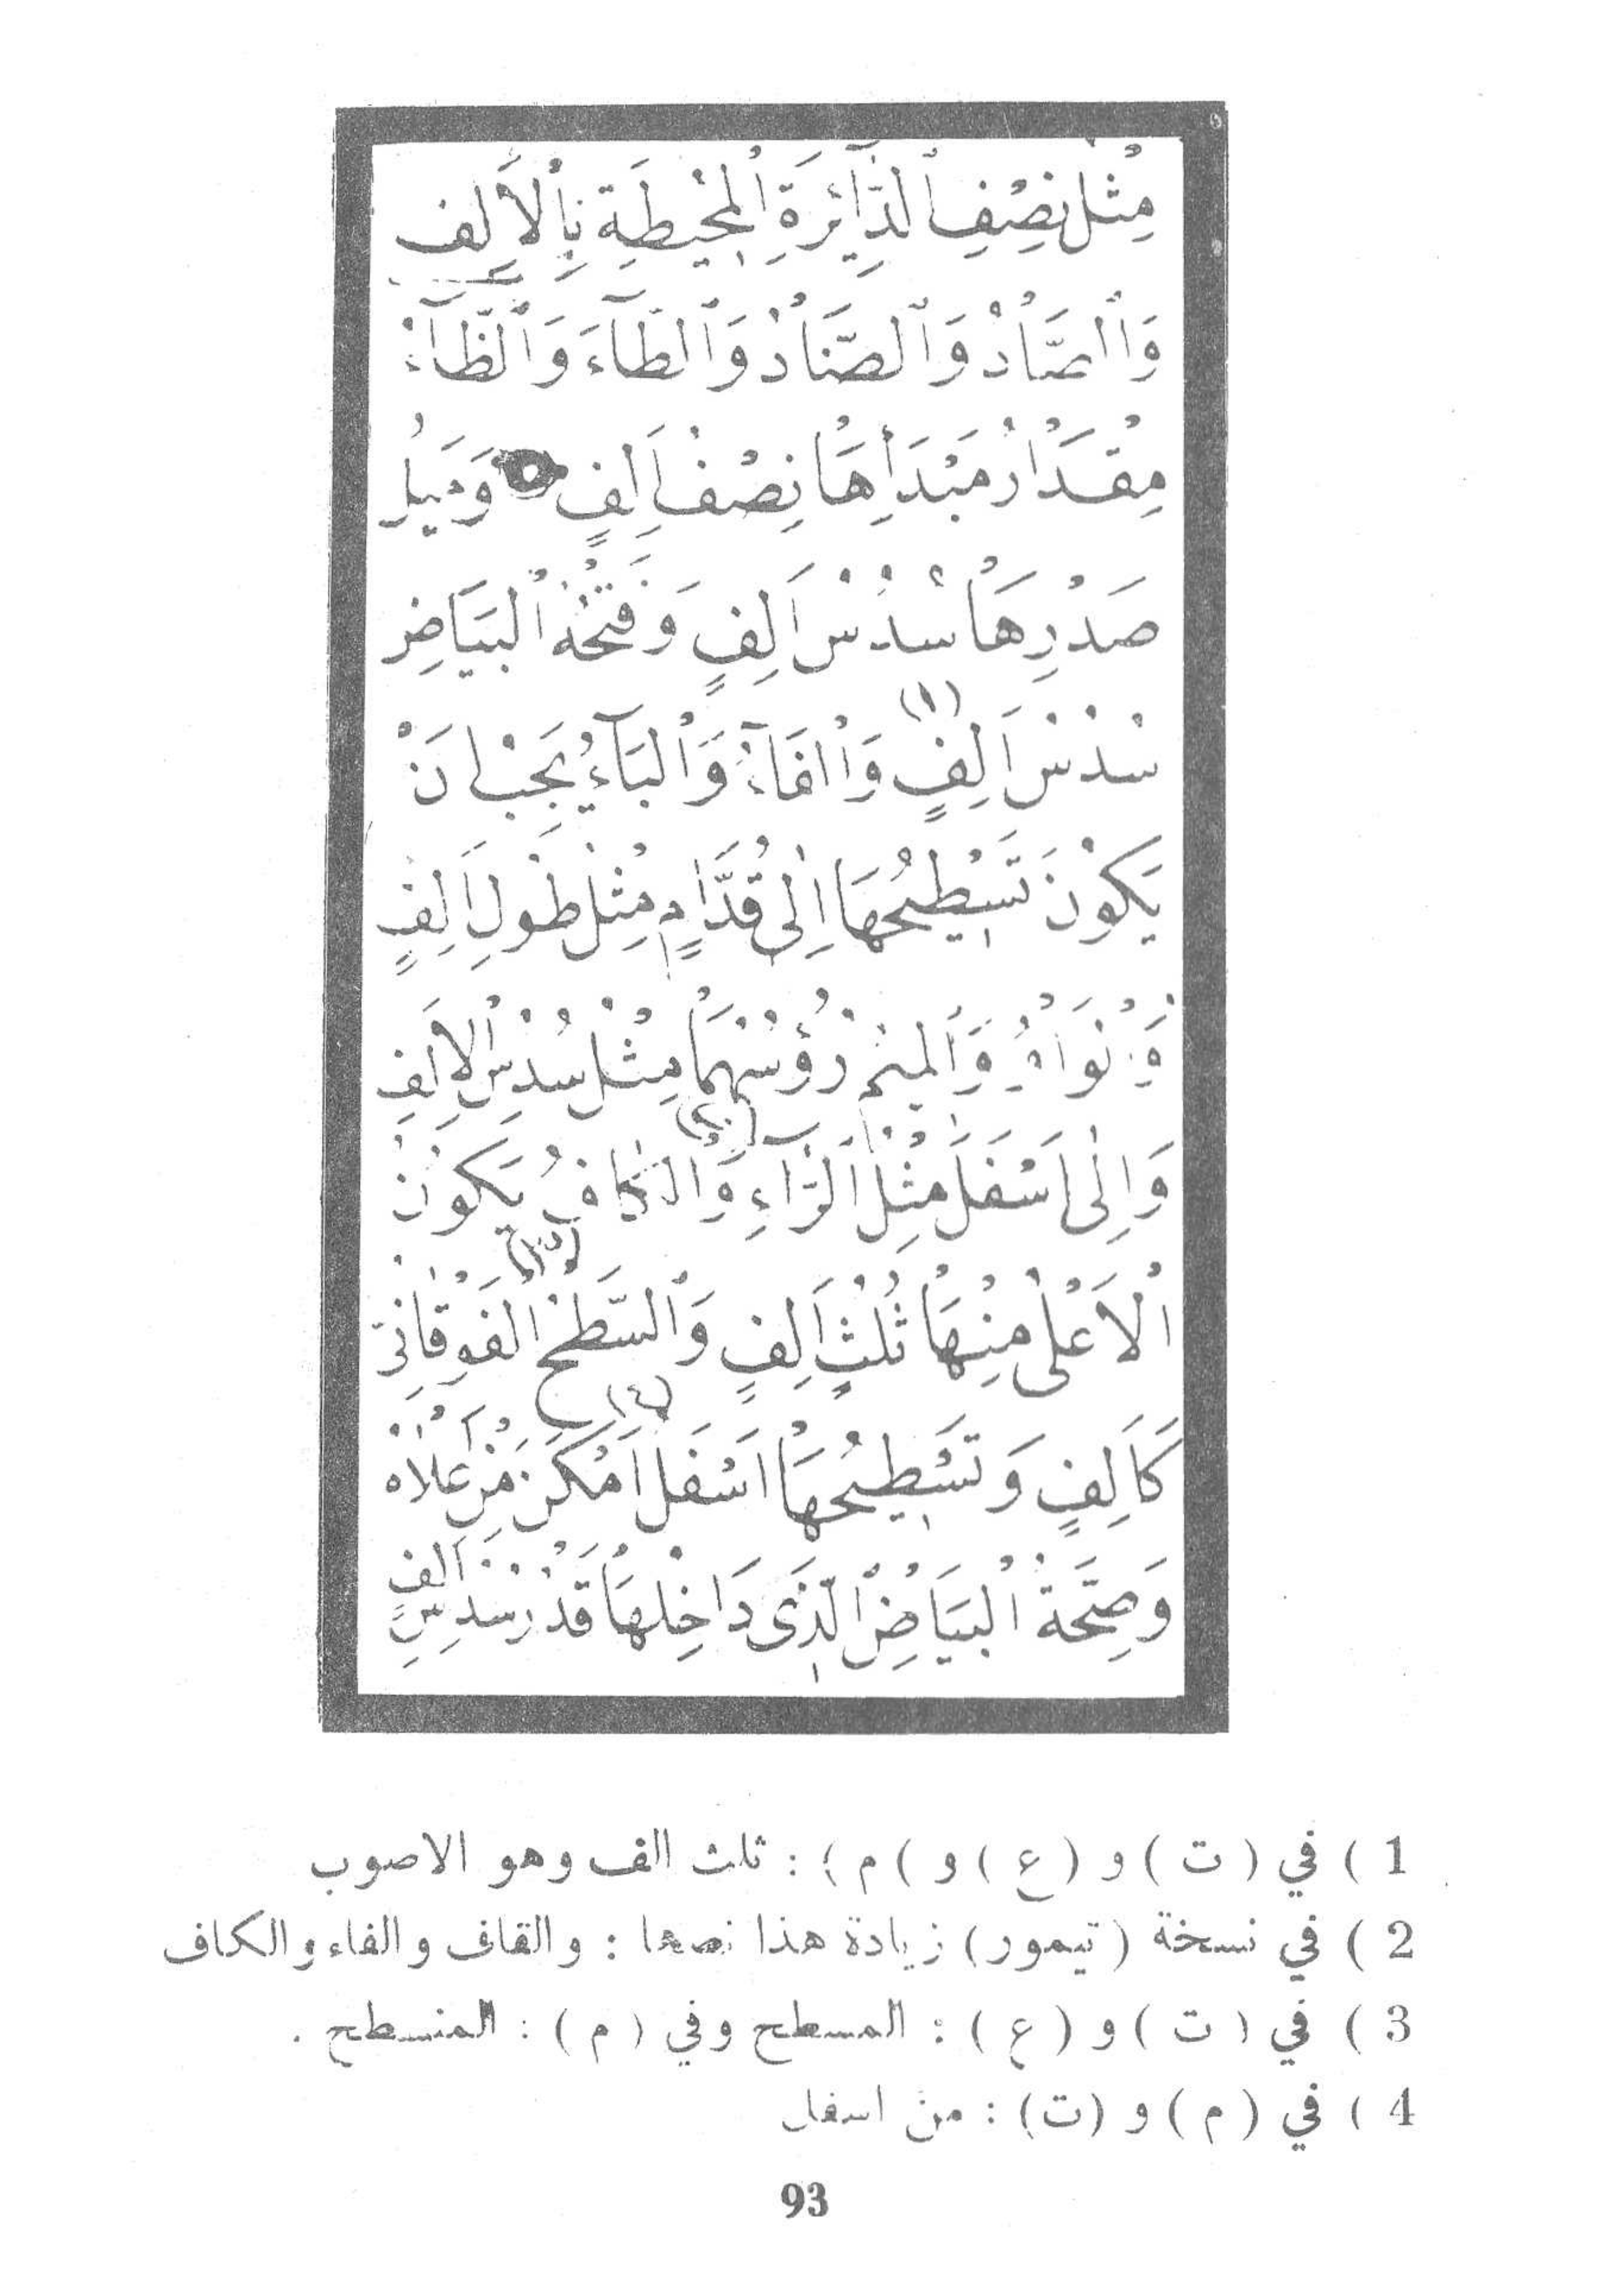 مِثْلُ نِصْفِ ٱلدَّآئِرَةِ ٱلْمُحِيْطَةِ بِٱلْأَلِفِ
وَٱلصَّادُ وَٱلضَّادُ وَٱلطَّآءُ وَٱلظَّآءُ
مِقْدَارُ مَبْدَأِهَا نِصْفُ اَلِفٍ وَمَيْلُ
صَدْرِهَا سُدْسُ اَلِفٍ وَفَتْحَةُ ٱلْبَيَاضِ
سُدْسُ اَلِفٍ (١) وَٱلفَآءُ وَٱلْبَآءُ يَجِبُ اَنْ
يَكُوْنَ تَسْطِيْحُهَا اِلٰى قُدَّامٍ مِثْلُ طُولِ اَلِفٍ
وَٱلْمِيْمُ رُؤُسُهُمَا مِثْلُ سُدْسِ ٱلْاَلِفِ
وَاِلٰى اَسْفَلَ مِثْلُ ٱلرَّآءِ (٢) وَٱلْكَافُ يَكُوْنُ
ٱلْاَعْلٰى مِنْهَا ثُلُثُ اَلِفٍ وَٱلسَّطْحُ (٣) ٱلْفَوْقَانِيّ
كَاَلِفٍ وَتَسْطِيْحُهَا اَسْفَلَ (٤) اَمْكَنُ مِنْ اَعْلَاهُ
وَصِحَّةُ ٱلْبَيَاضِ ٱلَّذِى دَاخِلَهَا قَدْرُ سُدْسِ اَلِفٍ
1 ) في ( ت ) و ( ع ) و ( م ) : ثلث الف وهو الاصوب
2 ) في نسخة ( تيمور ) زيادة هذا نصها : والقاف والفاء والكاف
3 ) في ( ت ) و ( ع ) : المسطح وفي ( م ) : المنسطح .
4 ) في ( م ) و ( ت ) : من اسفل
93